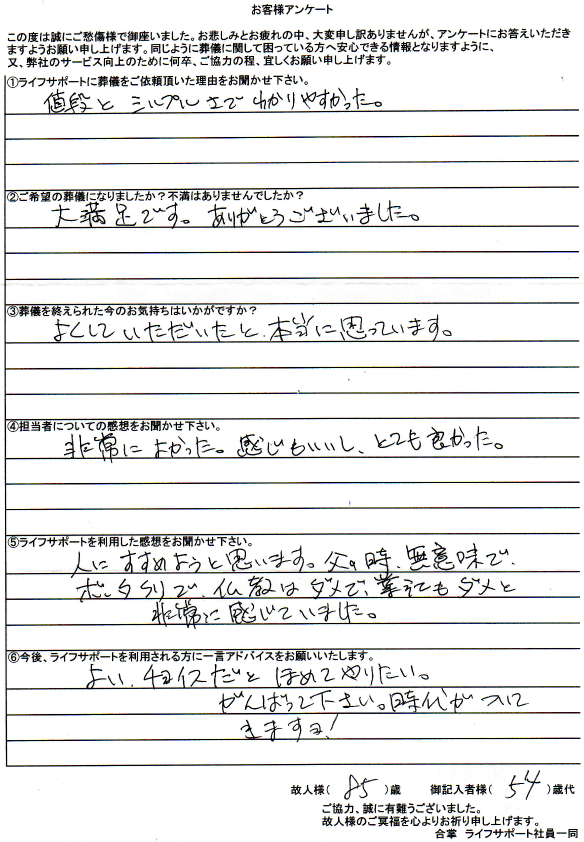 お客様アンケート
この度は誠にご愁傷様で御座いました。お悲しみとお疲れの中、大変申し訳ありませんが、アンケートにお答えいただき
ますようお願い申し上げます。同じように葬儀に関して困っている方へ安心できる情報となりますように、
又、弊社のサービス向上のために何卒、ご協力の程、宜しくお願い申し上げます。
①ライフサポートに葬儀をご依頼頂いた理由をお聞かせ下さい。
値段と シルプルさで わかりやすかった。
②ご希望の葬儀になりましたか？不満はありませんでしたか？
大満足です。ありがとうございました。
③葬儀を終えられた今のお気持ちはいかがですか？
よくしていただいたと、本当に思っています。
④担当者についての感想をお聞かせ下さい。
非常に よかった。感じもいいし、とても良かった。
⑤ライフサポートを利用した感想をお聞かせ下さい。
人に すすめようと思います。父の時、無意味で、
ボッタクリで、仏教は ダメで、葬式も ダメと
非常に感じていました。
⑥今後、ライフサポートを利用される方に一言アドバイスをお願いいたします。
よい、チョイスだと ほめてやりたい。
がんばって下さい。時代が ついて
きますヨ！
故人様（ 85 ）歳 御記入者様（ 54 ）歳代
ご協力、誠に有難うございました。
故人様のご冥福を心よりお祈り申し上げます。
合掌 ライフサポート社員一同